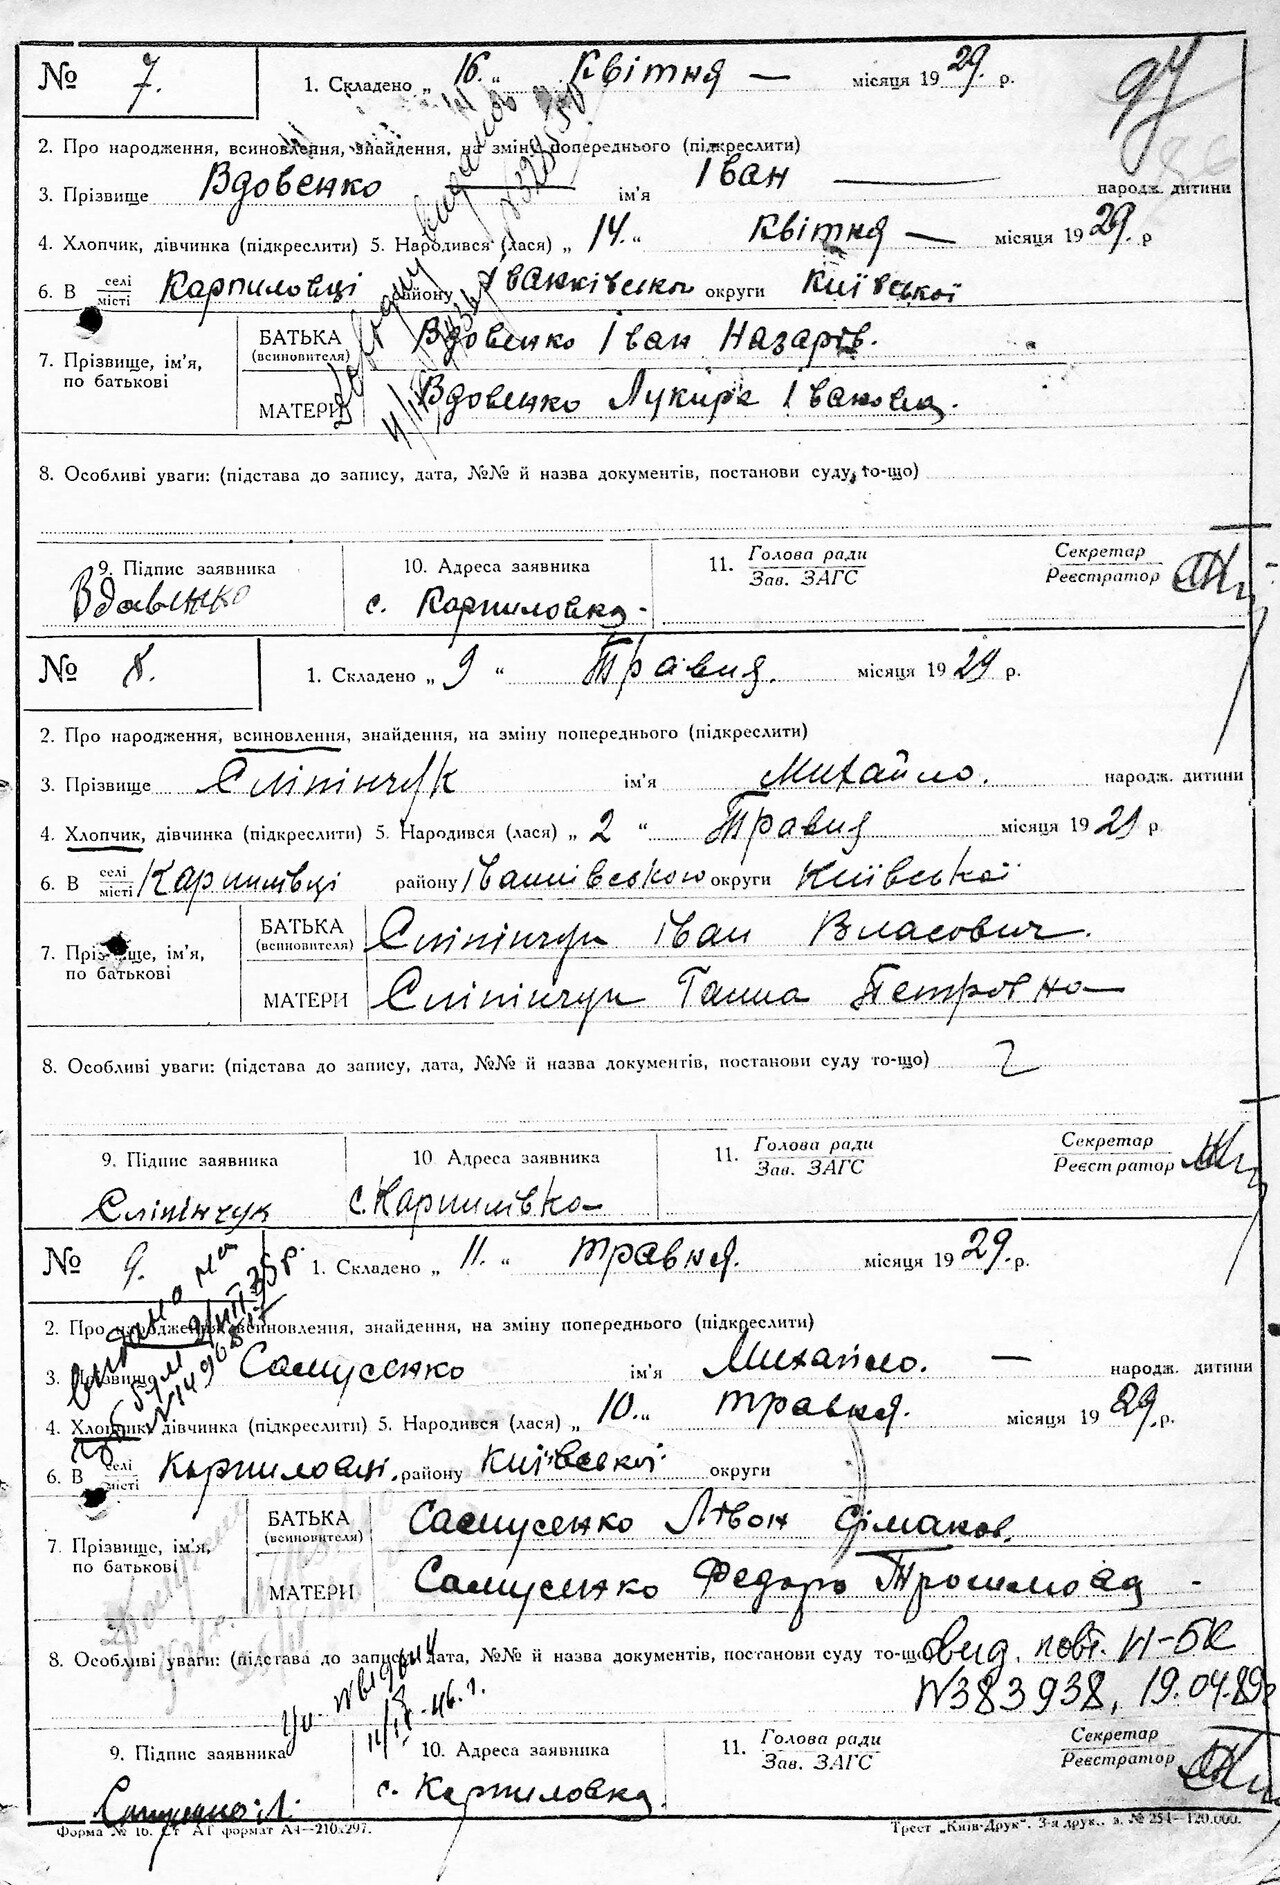 97
№ 7. 1. Складено „ 16. " Квітня — місяця 19 29. р.
2. Про народження, всиновлення, знайдення, на зміну попереднього (підкреслити)
3. Прізвище Вдовенко ім'я Іван народж. дитини
4. Хлопчик, дівчинка (підкреслити) 5. Народився (лася) „ 14. " Квітня — місяця 19 29. р
6. В селі/місті Карпиловці району Іванківськог округи Київської
7. Прізвище, ім'я, по батькові
БАТЬКА (всиновителя) Вдовенко Іван Назарів.
МАТЕРИ Вдовенко Лукіря Івановна.
8. Особливі уваги: (підстава до запису, дата, №№ й назва документів, постанови суду, то-що)
9. Підпис заявника 10. Адреса заявника 11. Голова ради/Зав. ЗАГС Секретар/Реєстратор
Вдовенко с. Карпиловка.
№ 8. 1. Складено „ 9 " Травня. місяця 19 29 р.
2. Про народження, всиновлення, знайдення, на зміну попереднього (підкреслити)
3. Прізвище Сліпінчук ім'я Михайло. народж. дитини
4. Хлопчик, дівчинка (підкреслити) 5. Народився (лася) „ 2 " Травня місяця 19 29 р
6. В селі/місті Карпилівці району Іванківського округи Київської
7. Прізвище, ім'я, по батькові
БАТЬКА (всиновителя) Сліпінчук Іван Власович.
МАТЕРИ Сліпінчук Ганна Петровна
8. Особливі уваги: (підстава до запису, дата, №№ й назва документів, постанови суду то-що)
9. Підпис заявника 10. Адреса заявника 11. Голова ради/Зав. ЗАГС Секретар/Реєстратор
Сліпінчук с. Карпилівка
№ 9. 1. Складено „ 11. " травня. місяця 19 29. р.
2. Про народження, всиновлення, знайдення, на зміну попереднього (підкреслити)
3. Прізвище Самусенко ім'я Михайло. — народж. дитини
4. Хлопчик, дівчинка (підкреслити) 5. Народився (лася) „ 10. " травня. місяця 19 29. р.
6. В селі/місті Карпиловці. району Київської округи
7. Прізвище, ім'я, по батькові
БАТЬКА (всиновителя) Самусенко Лівон Сімонов.
МАТЕРИ Самусенко Федора Трохимова
8. Особливі уваги: (підстава до запису, дата, №№ й назва документів, постанови суду то-що) Выд. повт. ІІ-БК
№383938, 19.04.89г
9. Підпис заявника 10. Адреса заявника 11. Голова ради/Зав. ЗАГС Секретар/Реєстратор
с. Карпиловка.
Форма № 16. Ст АТ формат А4—210×297. Трест „Київ-Друк". 3-я друк., з. № 254—120.000.